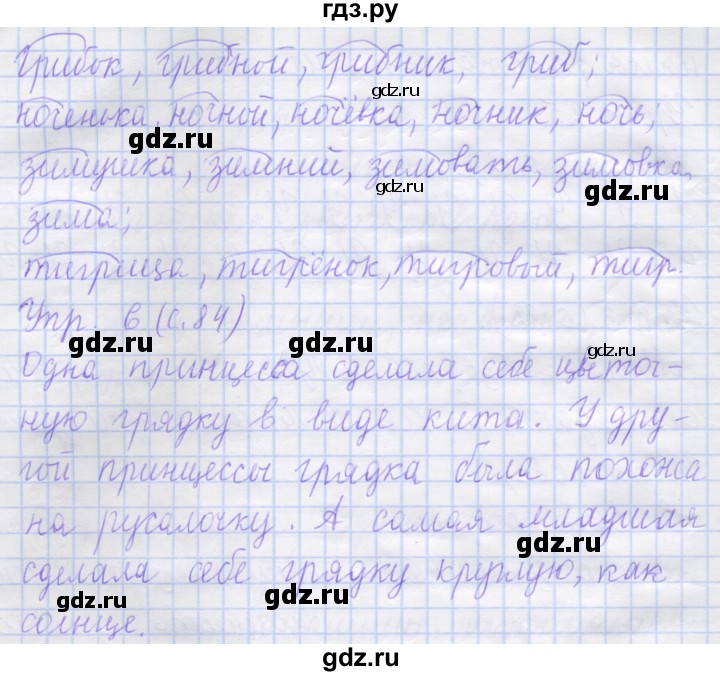 гдз.ру
Грибок, грибной, грибник, гриб;
gdz.ru
ноченька, ночной, ночёвка, ночник, ночь;
gdz.ru gdz.ru
зимушка, зимний, зимовать, зимовка,
gdz.ru gdz.ru
зима;
тигрица, тигрёнок, тигровый, тигр.
Упр. 6 (с.84)
gdz.ru gdz.ru gdz.ru
Одна принцесса сделала себе цветоч-
ную грядку в виде кита. У дру-
гой принцессы грядка была похожа
на русалочку. А самая младшая
gdz.ru gdz.ru
сделала себе грядку круглую, как
gdz.ru gdz.ru
солнце.
gdz.ru